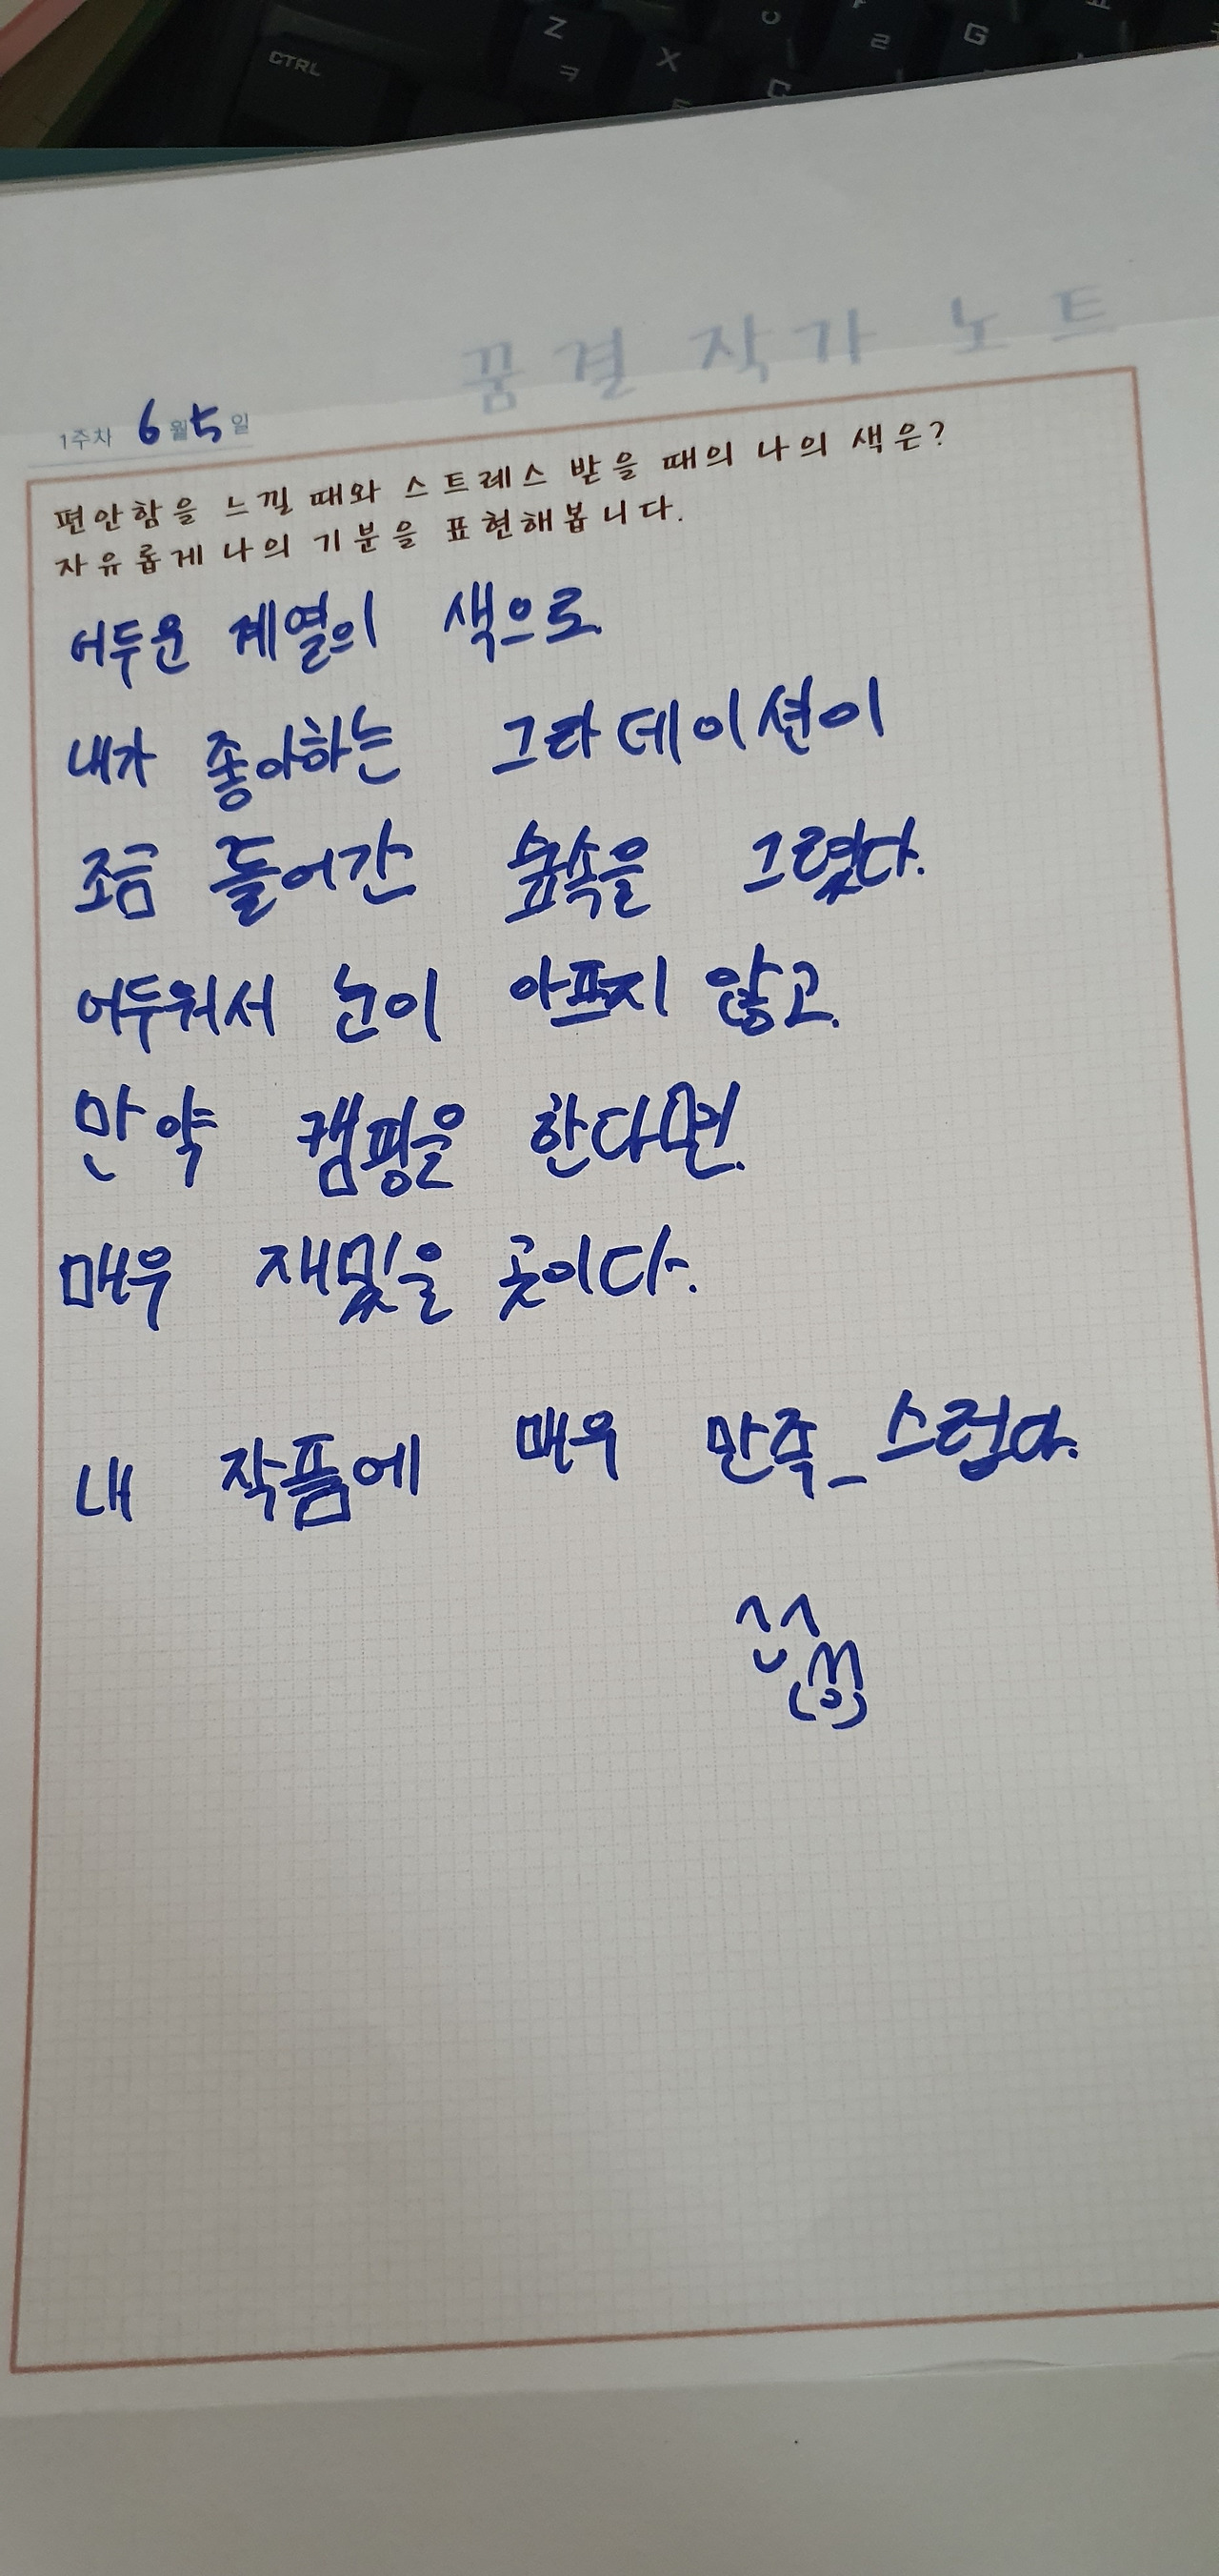 CTRL
Z
ㅋ
X
C
G
꿈결 작가 노트
1주차 6월 5일
편안함을 느낄 때와 스트레스 받을 때의 나의 색은?
자유롭게 나의 기분을 표현해봅니다.
어두운 계열의 색으로
내가 좋아하는 그라데이션이
조금 들어간 숲속을 그렸다.
어두워서 눈이 아프지 않고.
만약 캠핑을 한다면.
매우 재밌을 곳이다.
내 작품에 매우 만족_스럽다.